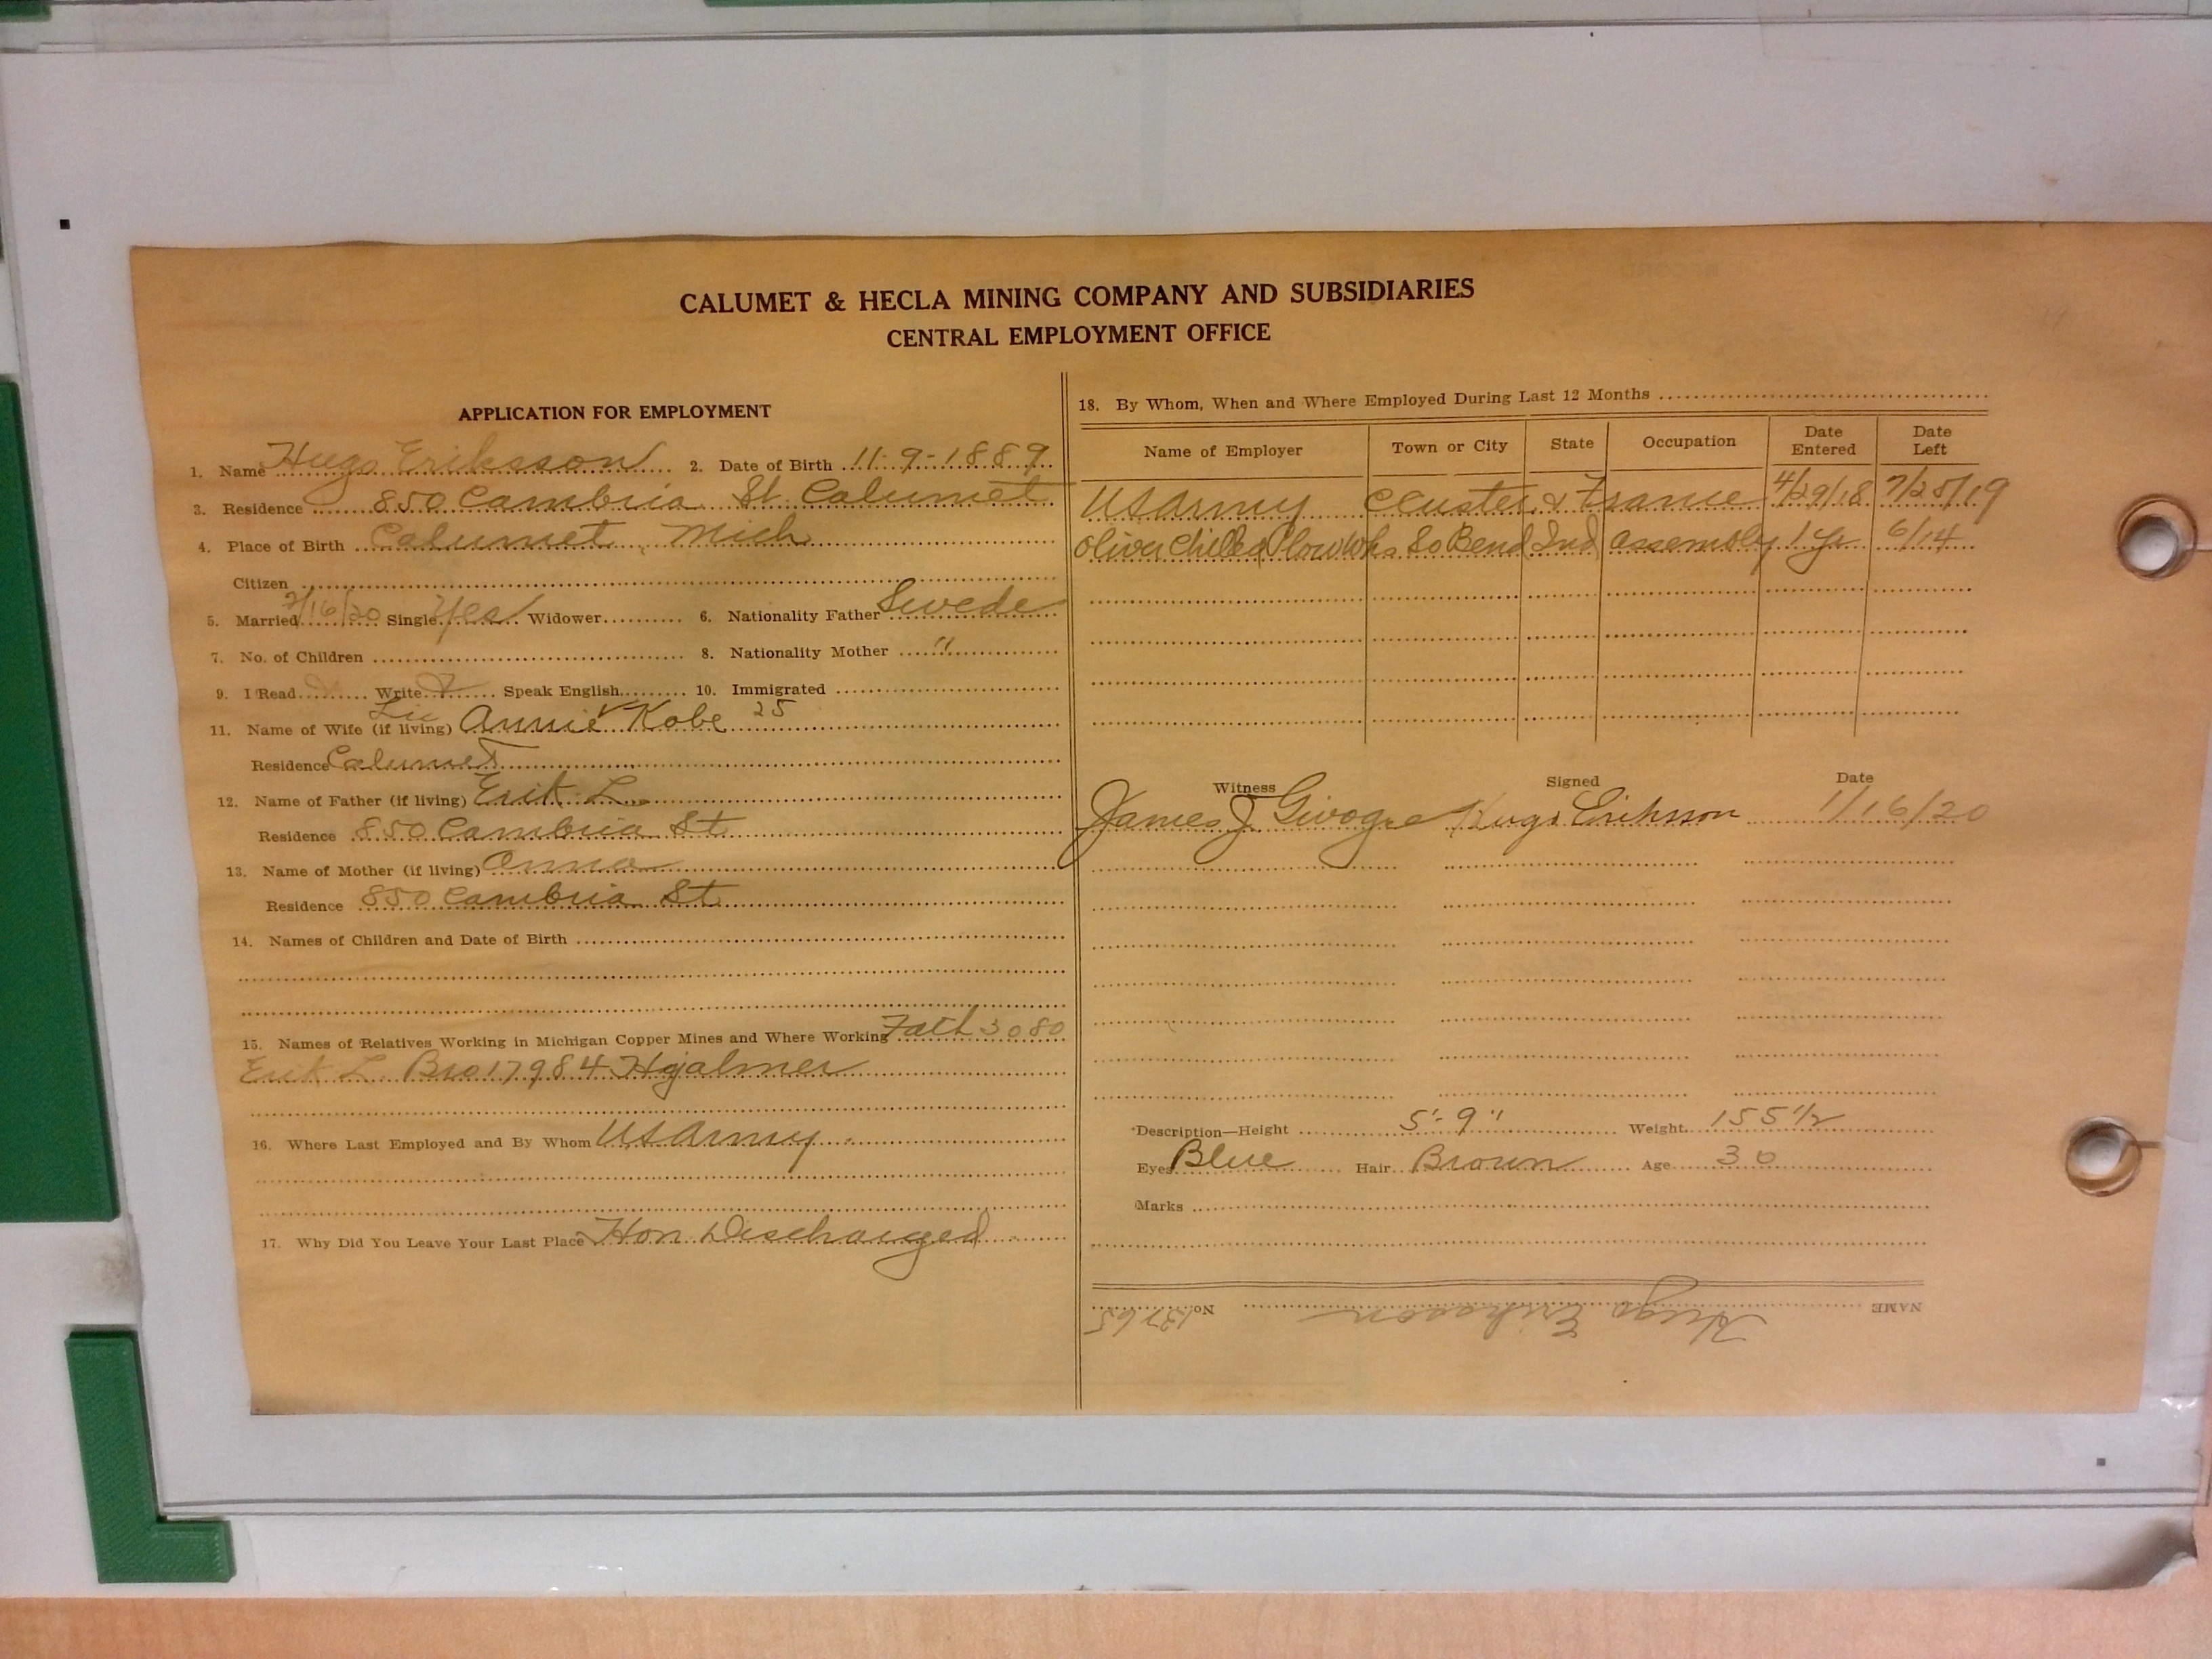 CALUMET & HECLA MINING COMPANY AND SUBSIDIARIES
CENTRAL EMPLOYMENT OFFICE
APPLICATION FOR EMPLOYMENT
1. Name Hugo Eriksson 2. Date of Birth 11-9-1889
3. Residence 850 Cambria St. Calumet
4. Place of Birth Calumet, Mich
Citizen
5. Married 2/16/20 Single Yes Widower 6. Nationality Father Swede
7. No. of Children 8. Nationality Mother "
9. I Read Write Speak English 10. Immigrated
11. Name of Wife (if living) Annie Kobe 25
Residence Calumet
12. Name of Father (if living) Erik L.
Residence 850 Cambria St
13. Name of Mother (if living) Anna
Residence 850 Cambria St
14. Names of Children and Date of Birth
15. Names of Relatives Working in Michigan Copper Mines and Where Working Fath 3080
Erik L. Bro 17984 Hjalmer
16. Where Last Employed and By Whom US Army
17. Why Did You Leave Your Last Place Hon Discharged
18. By Whom, When and Where Employed During Last 12 Months
Name of Employer Town or City State Occupation Date Entered Date Left
US Army Custer & France 4/29/18 7/25/19
Oliver Chilled Plow Wks So Bend Ind Assembly 1 yr 6/14
Witness Signed Date
James J. Hugo Eriksson 1/16/20
Description—Height 5'-9" Weight 155 1/2
Eyes Blue Hair Brown Age 30
Marks
NAME Hugo Eriksson No. 13765